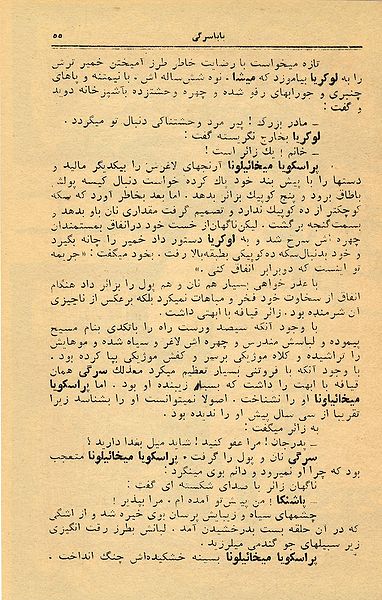 باباسرگی ۵۵
تازه میخواست با رضایت خاطر طرز آمیختن خمیر ترش
را به لوکریا بیاموزد که میشا . نوه شش‌ساله اش . با نیمتنه و پاهای
چنبری و جورابهای رفو شده و چهره وحشتزده بآشپزخانه دوید
و گفت :
ـ مادر بزرگ ! پیر مرد وحشتناکی دنبال تو میگردد .
لوکریا بخارج نگریسته گفت :
ـ خانم ! یك زائر است !
پراسکویا میخائیلونا آرنجهای لاغرش را بیکدیگر مالید و
دستها را با پیش بند خود پاك کرده خواست دنبال کیسه پولش
باطاق برود و پنج کوپیك بزائر بدهد . اما بعد بخاطر آورد که سکه
کوچکتر از ده کوپیك ندارد و تصمیم گرفت مقداری نان باو بدهد و
بسمت گنجه برگشت . لیکن ناگهان از خست خود در انفاق بمستمندان
چهره اش سرخ شد و به لوکریا دستور داد خمیر را چانه بگیرد
و خود بدنبال سکه ده کوپیکی بطبقه بالا رفت . بخود میگفت : «جریمه
تو اینست که دوبرابر انفاق کنی .»
با عذر خواهی بسیار هم نان و هم پول را بزائر داد هنگام
انفاق از سخاوت خود فخر و مباهات نمیکرد بلکه برعکس از ناچیزی
آن شرمنده بود . زائر قیافه با ابهتی داشت .
با وجود آنکه سیصد ورست راه را باتکدی بنام مسیح
پیموده و لباسش مندرس و چهره اش لاغر و سیاه شده و موهایش
را تراشیده و کلاه موژیکی برسر و کفش موژیکی بپا کرده بود .
با وجود آنکه با فروتنی بسیار تعظیم میکرد معذلك سرگی همان
قیافه با ابهت را داشت که بسیار زیبنده او بود . اما پراسکویا
میخائیلونا او را نشناخت . اصولا نمیتوانست او را بشناسد زیرا
تقریبا از سی سال پیش او را ندیده بود .
به زائر میگفت :
ـ پدرجان ! مرا عفو کنید ! شاید میل بغذا دارید ؟
سرگی نان و پول را گرفت . پراسکویا میخائیلونا متعجب
بود که چرا او نمیرود و دائم بوی مینگرد :
ناگهان زائر با صدای شکسته ای گفت :
ـ پاشنکا ! من پیش تو آمده ام . مرا بپذیر !
چشمهای سیاه و زیبایش پرسان بوی خیره شد و از اشکی
که در آن حلقه بست بدرخشیدن آمد . لبانش بطرز رقت انگیزی
زیر سبیلهای جو گندمی میلرزید .
پراسکویا میخائیلونا بسینه خشکیده‌اش چنگ انداخت .